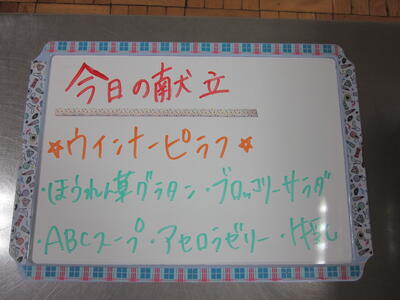 今日の献立
☆ウインナーピラフ☆
・ほうれん草グラタン・ブロッコリーサラダ
・ABCスープ・アセロラゼリー・牛乳